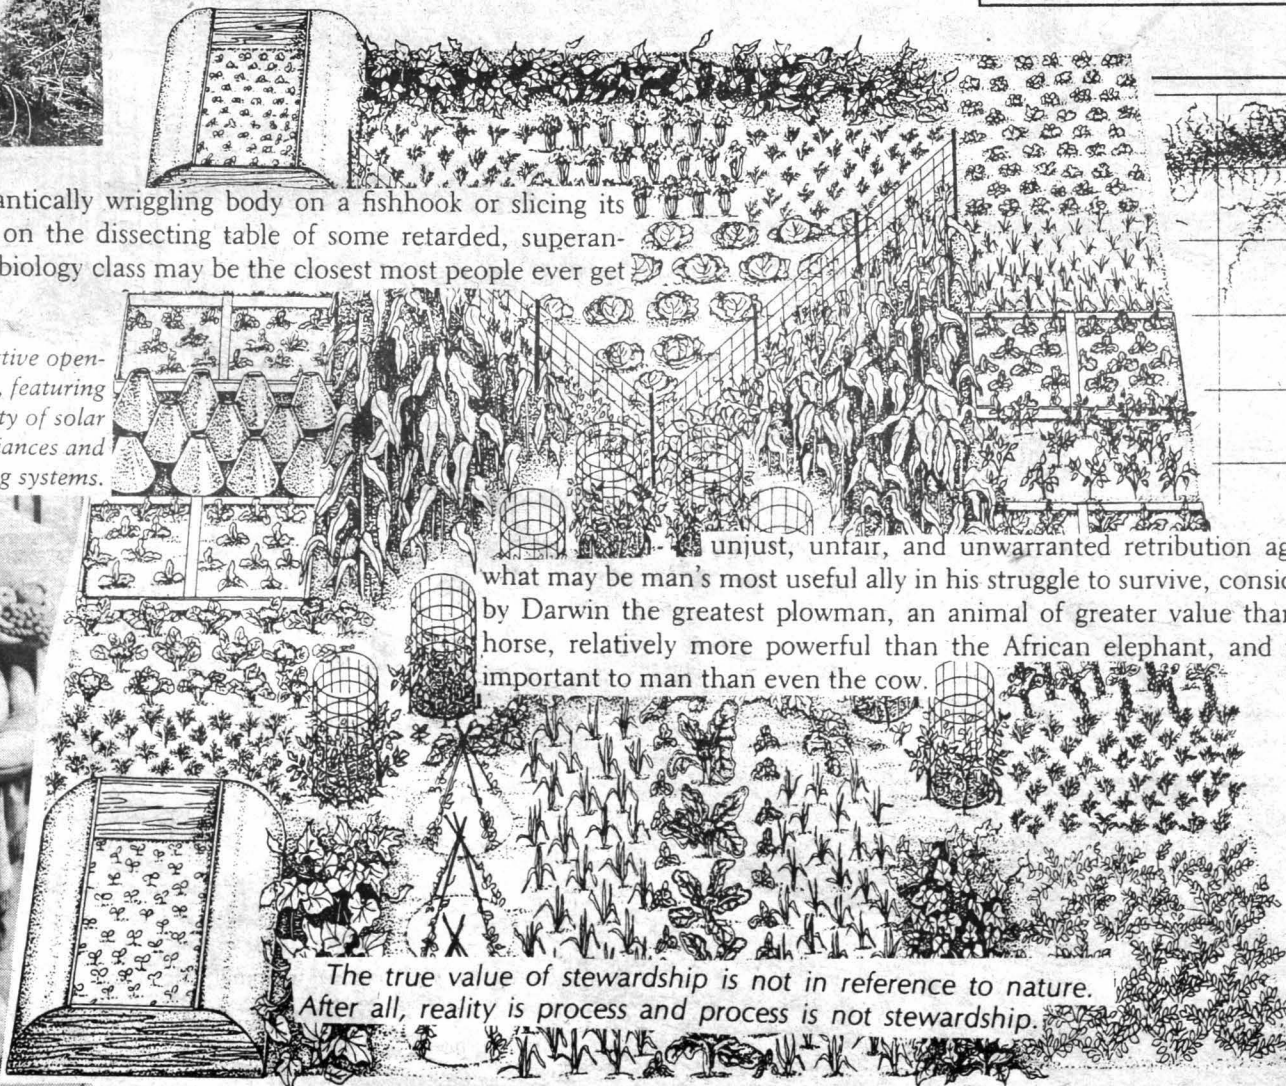 antically wriggling body on a fishhook or slicing its
on the dissecting table of some retarded, superan-
biology class may be the closest most people ever get
tive open-
, featuring
ty of solar
ances and
g systems.
unjust, unfair, and unwarranted retribution ag
what may be man's most useful ally in his struggle to survive, consid
by Darwin the greatest plowman, an animal of greater value than
horse, relatively more powerful than the African elephant, and
important to man than even the cow.
The true value of stewardship is not in reference to nature.
After all, reality is process and process is not stewardship.